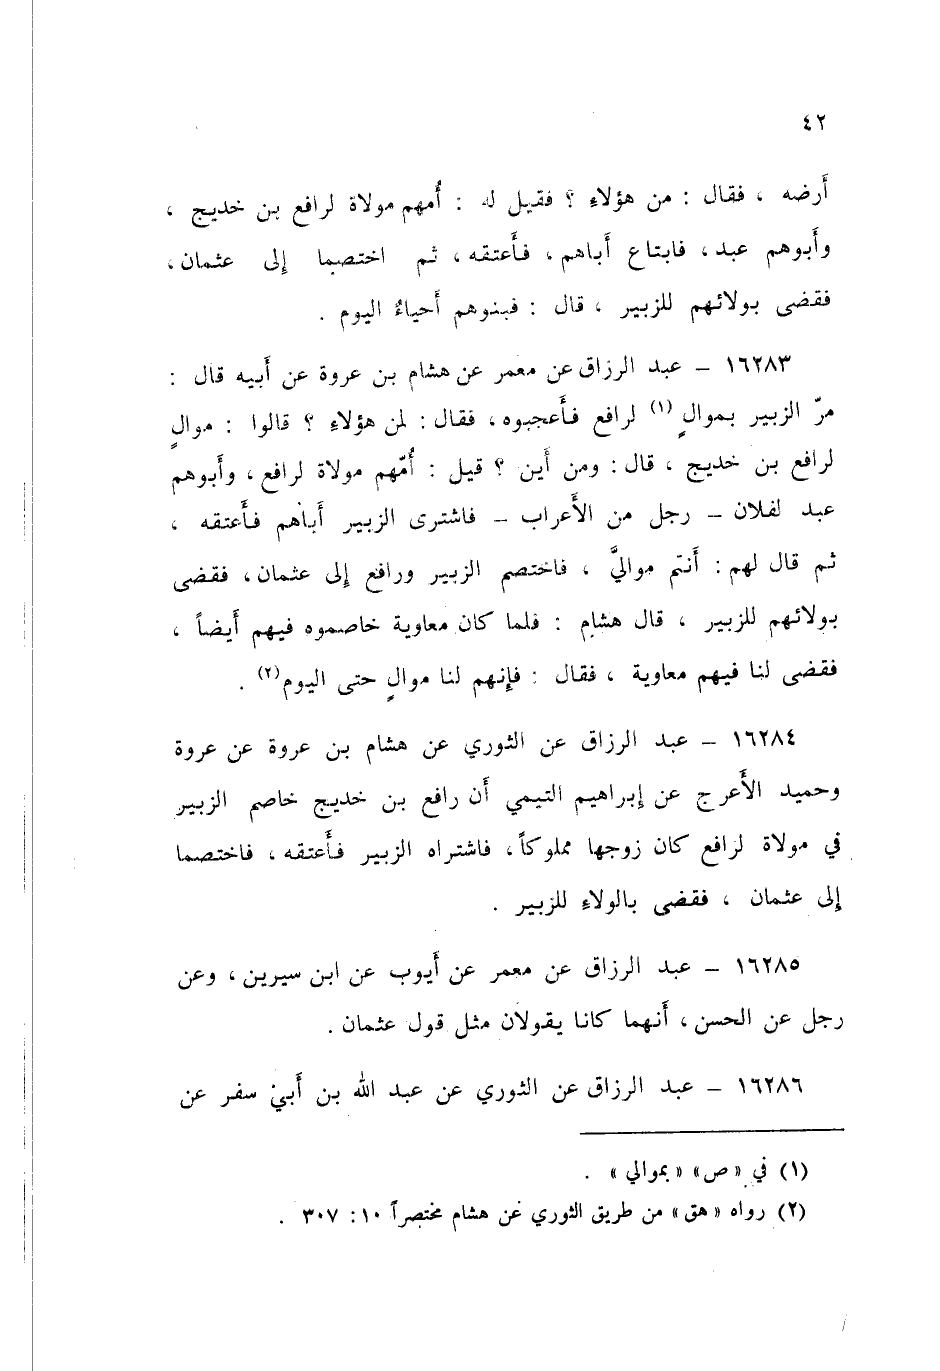 ٤٢
أرضه ، فقال : من هؤلاء ؟ فقيل له : أُمهم مولاة لرافع بن خديج ،
وأبوهم عبد ، فابتاع أباهم ، فأعتقه ، ثم اختصما إلى عثمان ،
فقضى بولائهم للزبير ، قال : فبنوهم أحياءٌ اليوم .
١٦٢٨٣ – عبد الرزاق عن معمر عن هشام بن عروة عن أبيه قال :
مرّ الزبير بموالٍ (١) لرافع فأعجبوه ، فقال : لمن هؤلاء ؟ قالوا : موالٍ
لرافع بن خديج ، قال : ومن أين ؟ قيل : أُمّهم مولاة لرافع ، وأبوهم
عبد لفلان – رجل من الأعراب – فاشترى الزبير أباهم فأعتقه ،
ثم قال لهم : أنتم مواليَّ ، فاختصم الزبير ورافع إلى عثمان ، فقضى
بولائهم للزبير ، قال هشام : فلما كان معاوية خاصموه فيهم أيضاً ،
فقضى لنا فيهم معاوية ، فقال : فإنهم لنا موالٍ حتى اليوم (٢) .
١٦٢٨٤ – عبد الرزاق عن الثوري عن هشام بن عروة عن عروة
وحميد الأعرج عن إبراهيم التيمي أن رافع بن خديج خاصم الزبير
في مولاة لرافع كان زوجها مملوكاً ، فاشتراه الزبير فأعتقه ، فاختصما
إلى عثمان ، فقضى بالولاء للزبير .
١٦٢٨٥ – عبد الرزاق عن معمر عن أيوب عن ابن سيرين ، وعن
رجل عن الحسن ، أنهما كانا يقولان مثل قول عثمان .
١٦٢٨٦ – عبد الرزاق عن الثوري عن عبد الله بن أبي سفر عن
(١) في « ص » « بموالي » .
(٢) رواه « هق » من طريق الثوري عن هشام مختصراً ١٠ : ٣٠٧ .